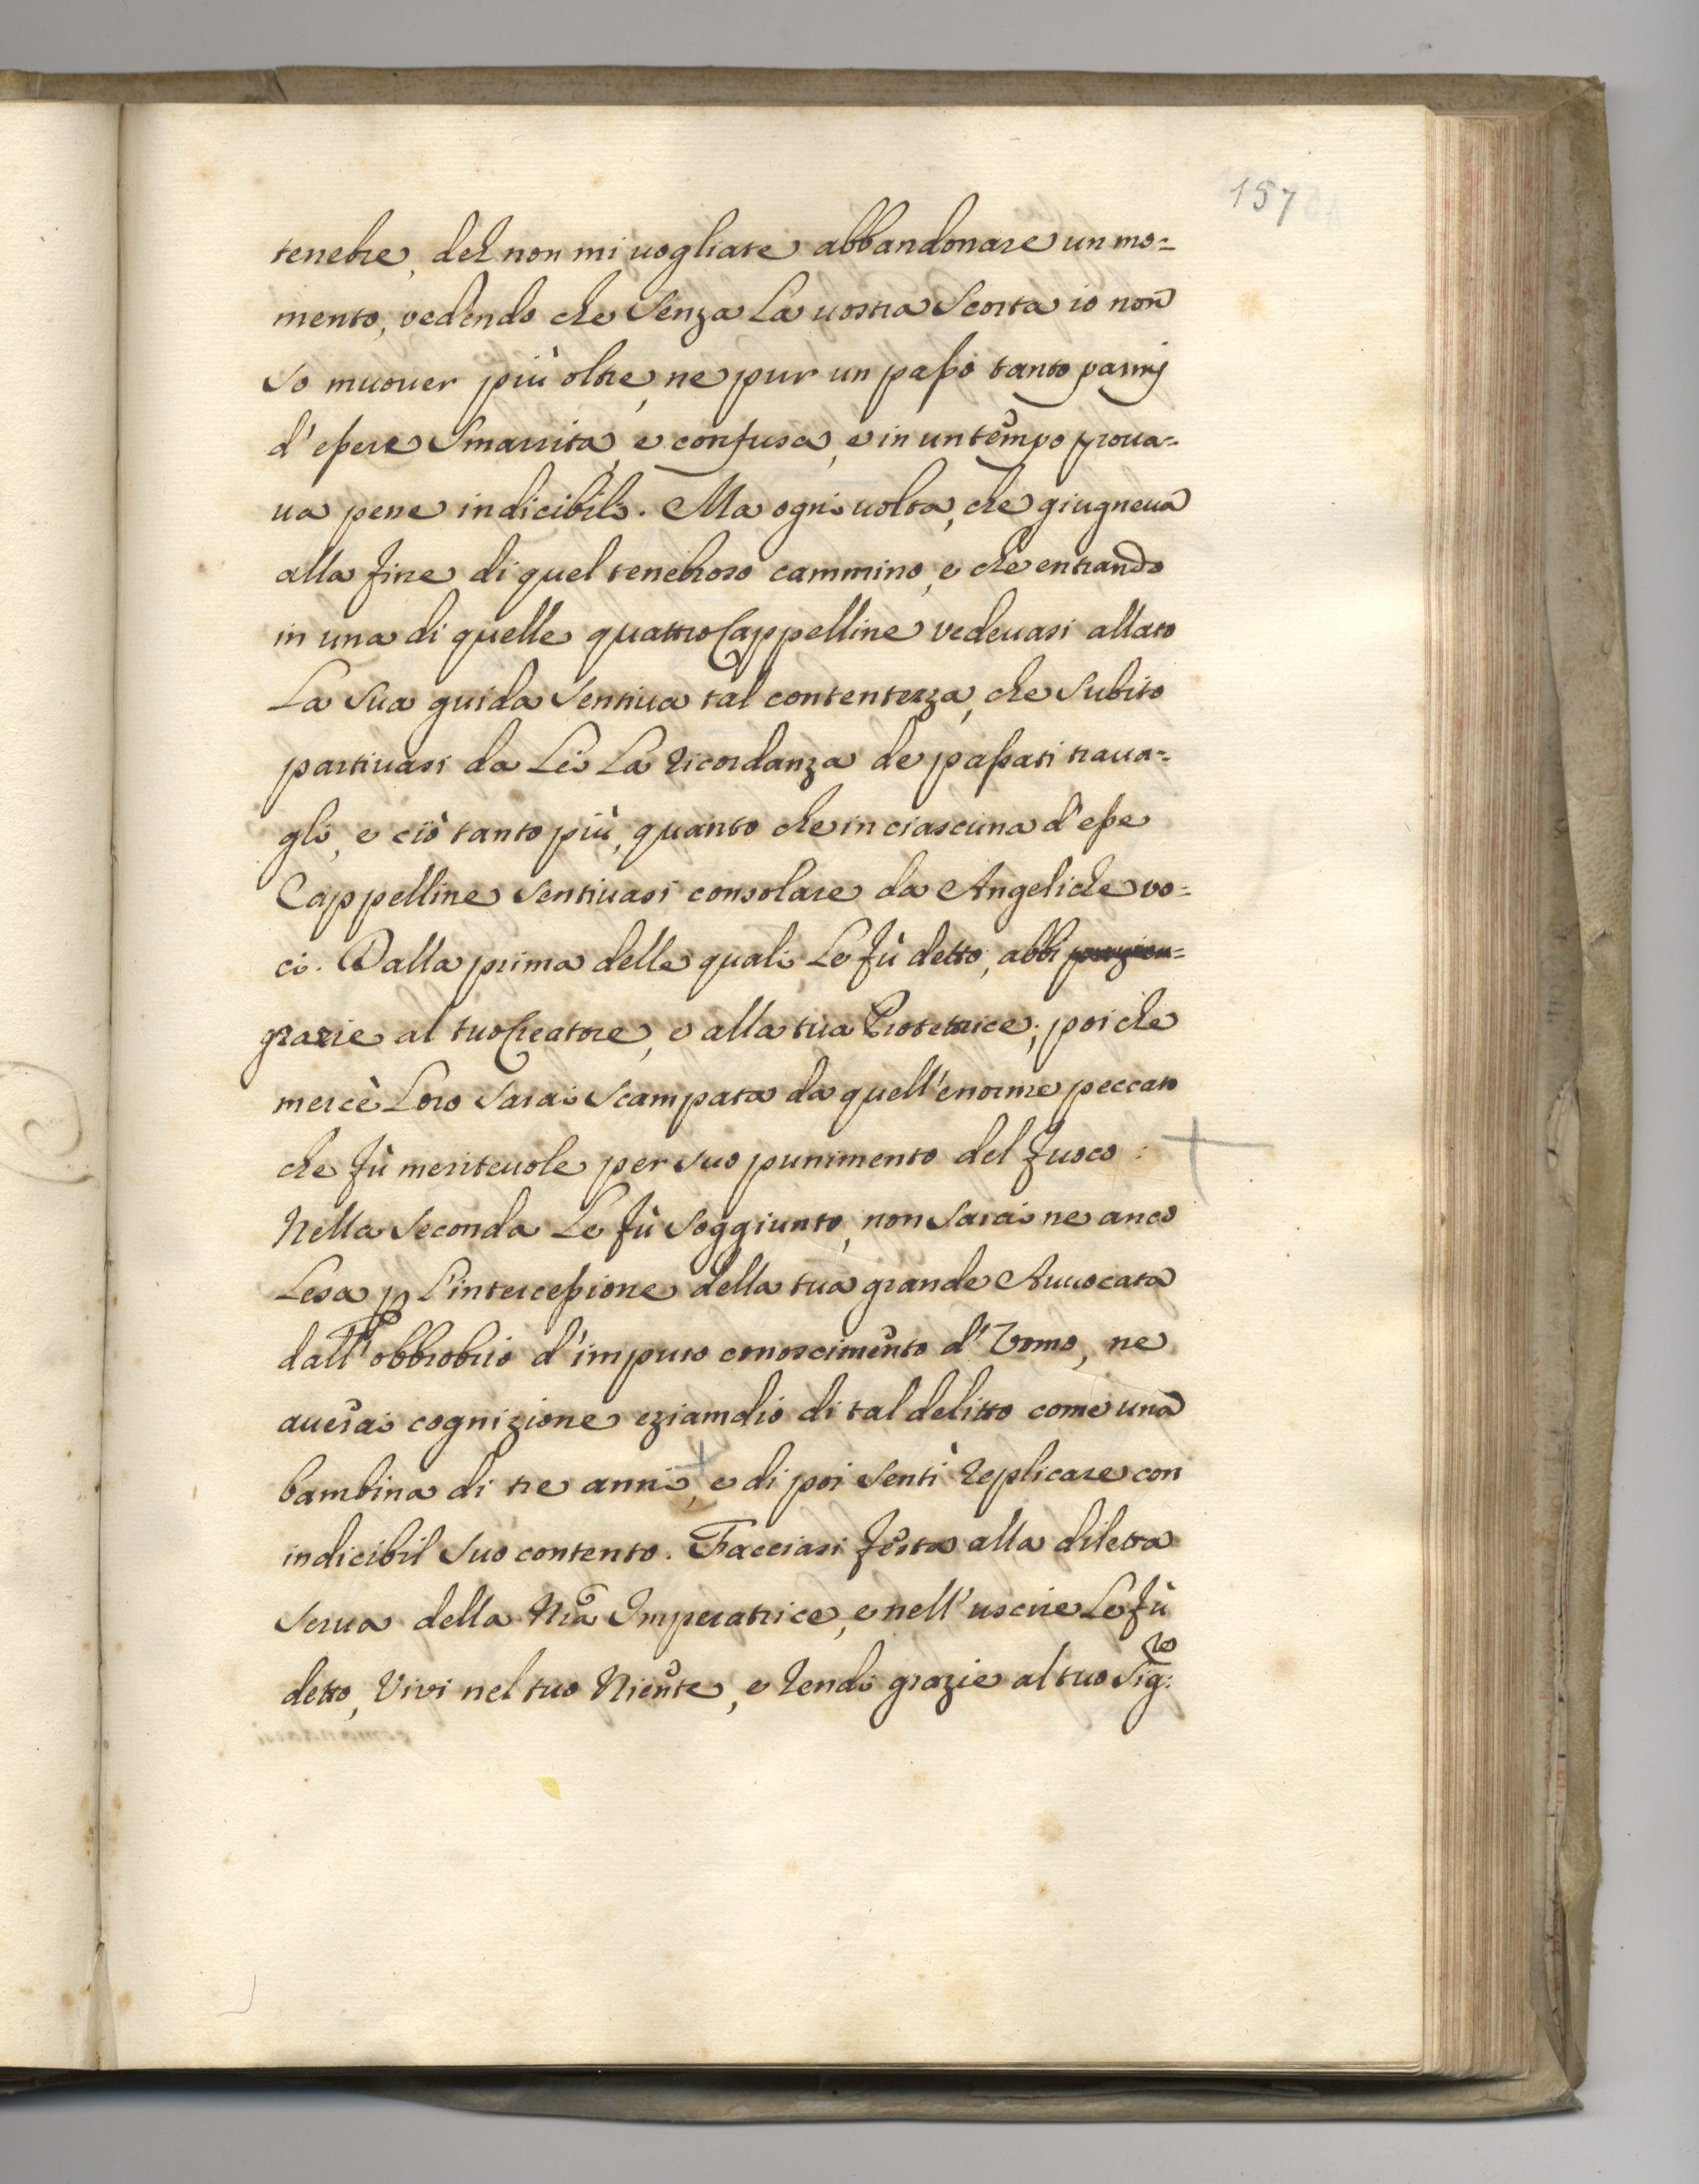 157
tenebre, deh non mi uogliate abbandonare un mo=
mento, vedendo che senza La uostra Scorta io non
so muouer più oltre, ne pur un passo tanto parmj
d'essere Smarrita, e confusa, e in un tempo proua=
ua pene indicibili. Ma ogni uolta, che giugneua
alla fine di quel tenebroso cammino, e che entrando
in una di quelle quattro Cappelline vedeuasi allato
La sua guida sentiua tal contentezza, che subito
partiuasi da Lei La ricordanza de passati traua=
gli, e ciò tanto più, quanto che in ciascuna d'esse
Cappelline sentiuasi consolare da Angeliche vo=
ci. Dalla prima delle quali Le fù detto, abbi
grazie al tuo Creatore, e alla tua Protetrice; poi che
mercè Loro sarai scampata da quell'enorme peccato
che fù meriteuole per suo punimento del fuoco:
Nella seconda Le fù soggiunto, non sarai ne anco
Lesa p L'intercessione della tua grande Auuocata
dall'obbrobrio d'impuro conoscimento d'Vomo, ne
auerai cognizione eziamdio di tal delitto come una
bambina di tre anni, e di poi sentì replicare con
indicibil suo contento. Facciasi festa alla diletta
serua della Nra Imperatrice, e nell'uscire Le fù
detto, Vivi nel tuo Niente, e rendi grazie al tuo Sig:re